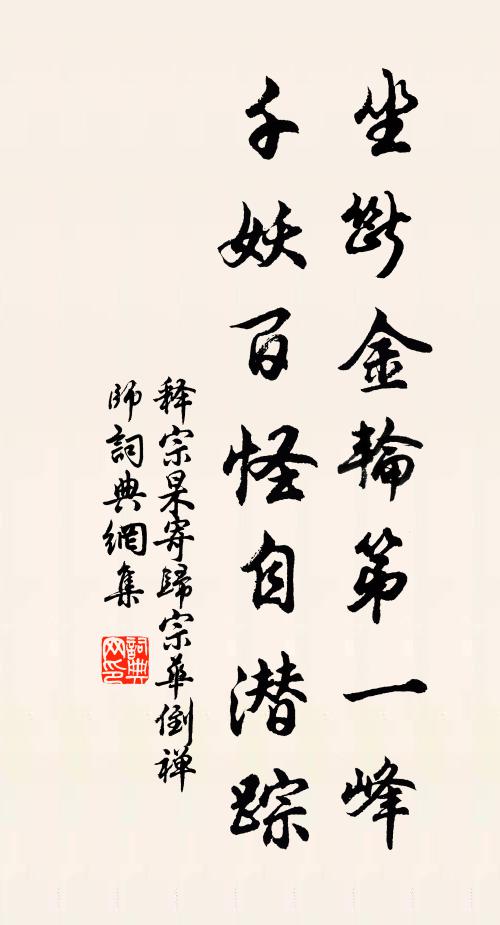 坐断金輪第一峰
千妖百怪自潜踪
释宗杲寄歸宗華倒禅
師詞典網集
詞典网印